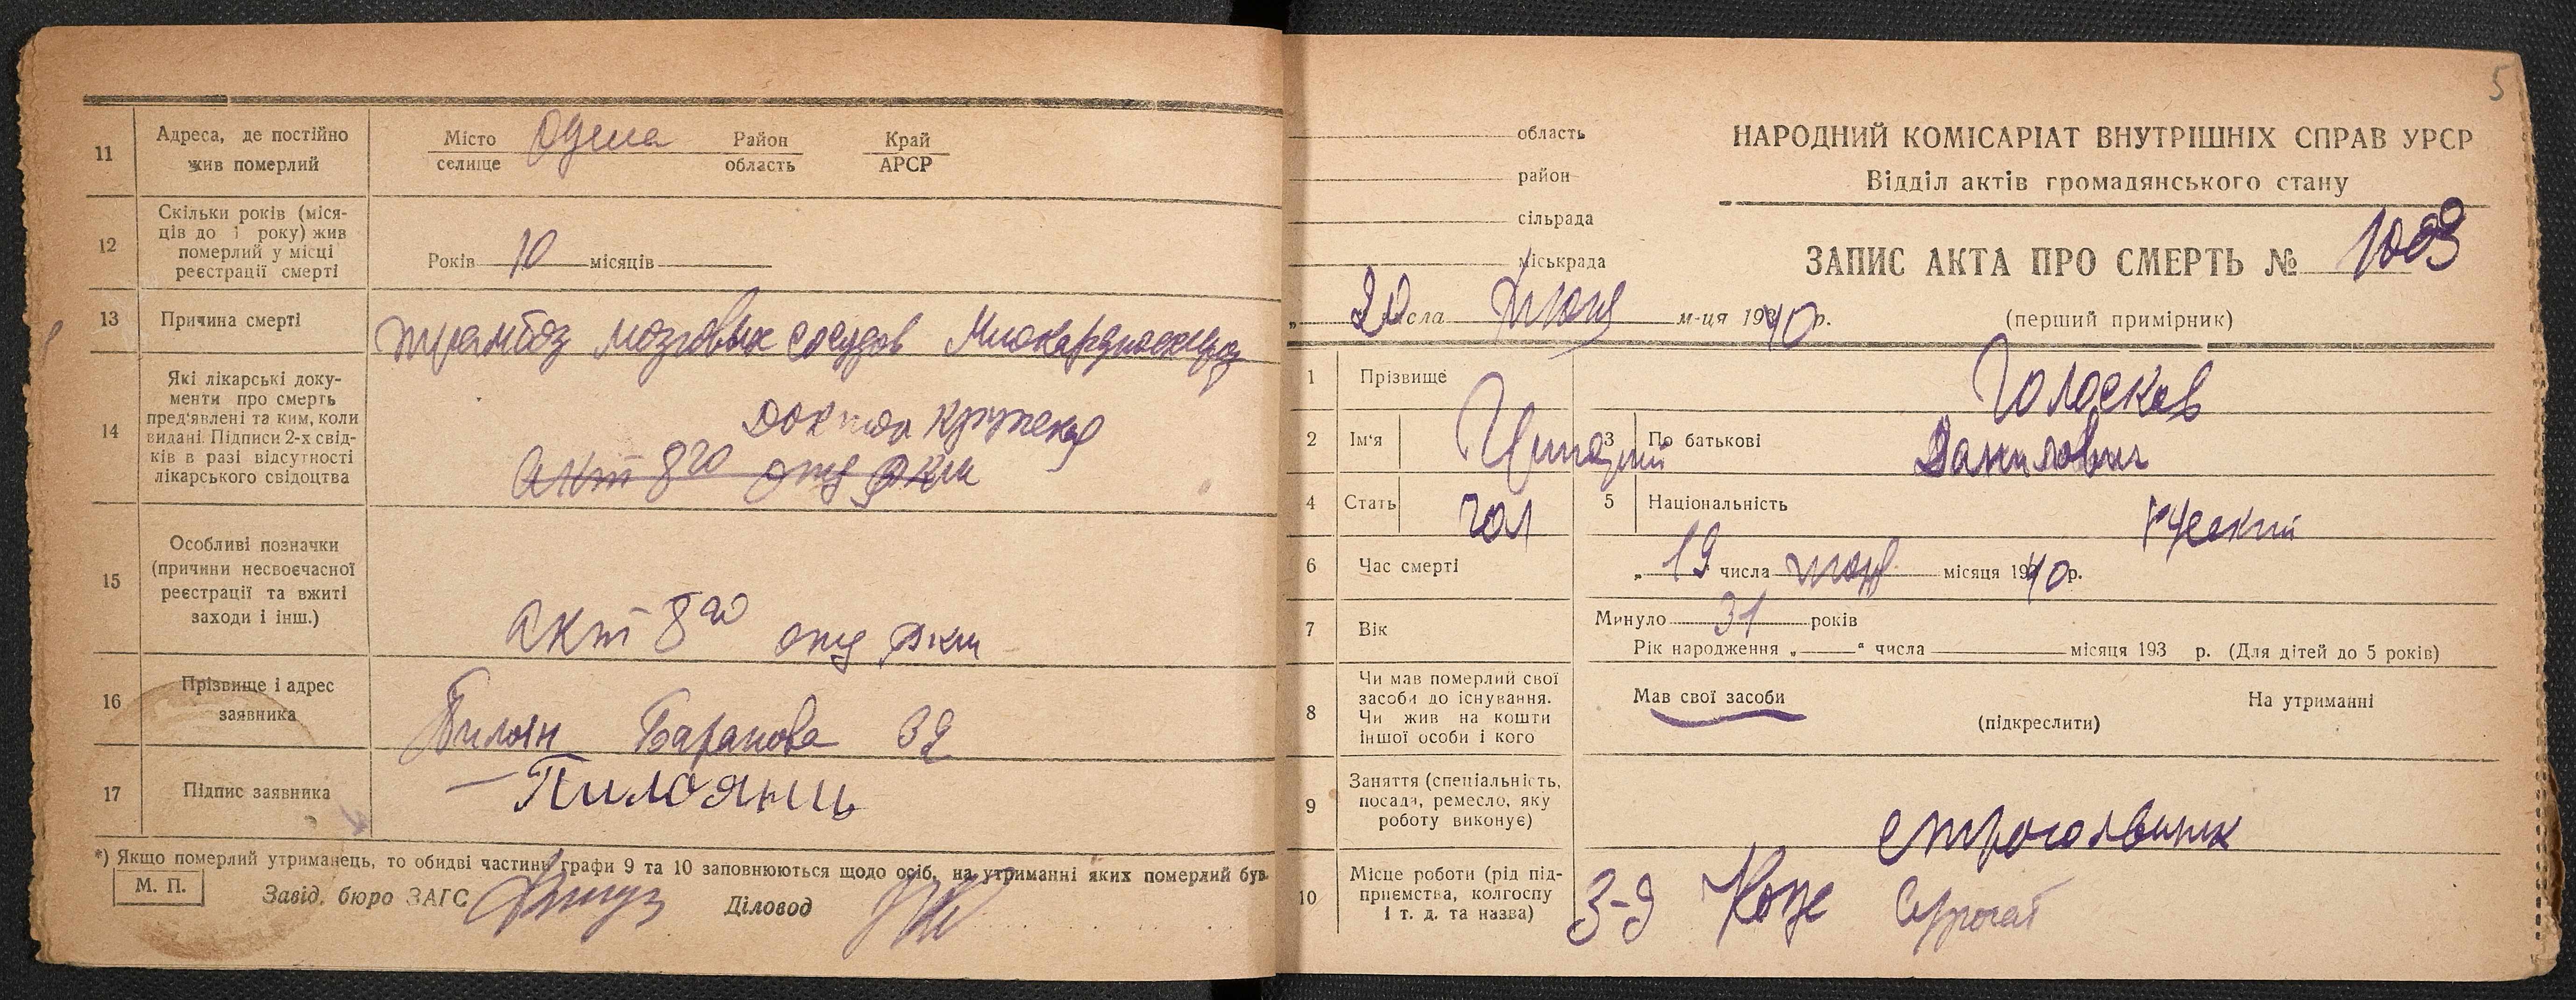 11 Адреса, де постійно жив померлий
Місто селище Одеса Район область Край АРСР
12 Скільки років (міся-
ців до 1 року) жив
померлий у місці
реєстрації смерті
Років 10 місяців
13 Причина смерті
тромбоз мозговых сосудов Миокардиосклероз
14 Які лікарські доку-
менти про смерть
пред'явлені та ким, коли
видані. Підписи 2-х свід-
ків в разі відсутності
лікарського свідоцтва
доктор
акт 820
15 Особливі позначки
(причини несвоєчасної
реєстрації та вжиті
заходи і інш.)
акт 820
16 Прізвище і адрес
заявника
Пилоян Баранова 32
17 Підпис заявника
Пилоянць
*) Якщо померлий утриманець, то обидві частини графи 9 та 10 заповнюються щодо осіб, на утриманні яких померлий був
М. П. Завід. бюро ЗАГС Діловод
5
область
район
сільрада
міськрада
НАРОДНИЙ КОМІСАРІАТ ВНУТРІШНІХ СПРАВ УРСР
Відділ актів громадянського стану
ЗАПИС АКТА ПРО СМЕРТЬ № 1009
„ 20 сла июня м-ця 1940 р.
(перший примірник)
1 Прізвище Голосков
2 Ім'я
3 По батькові Данилович
4 Стать чол
5 Національність русский
6 Час смерті „ 19 числа июня місяця 1940 р.
7 Вік Минуло 31 років
Рік народження „ “ числа місяця 193 р. (Для дітей до 5 років)
8 Чи мав померлий свої
засоби до існування.
Чи жив на кошти
іншої особи і кого
Мав свої засоби На утриманні
(підкреслити)
9 Заняття (спеціальність,
посада, ремесло, яку
роботу виконує)
строгальщик
10 Місце роботи (рід під-
приємства, колгоспу
і т. д. та назва)
З-д